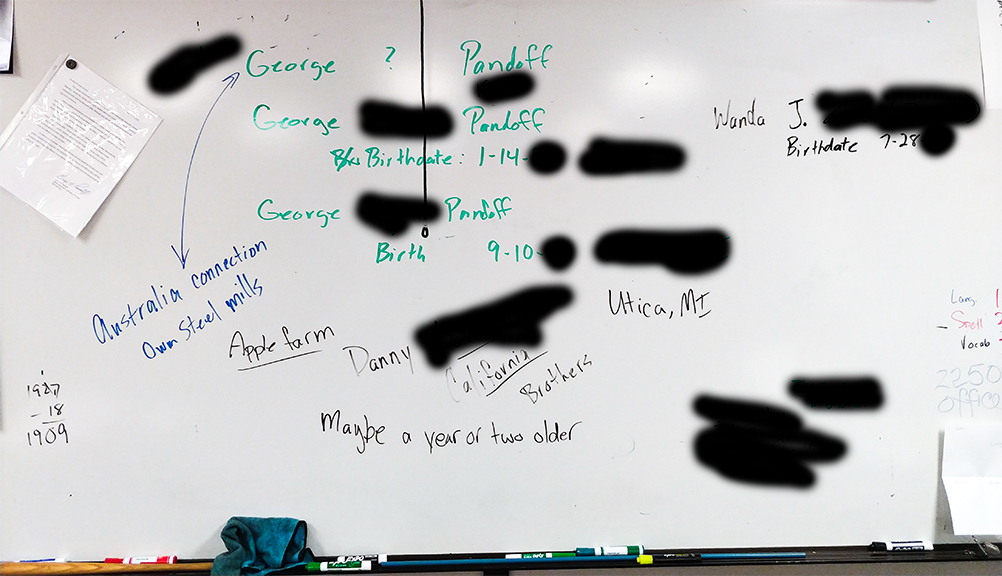 George ? Pandoff
George Pandoff
Birthdate: 1-14-
George Pandoff
Birth 9-10-
Wanda J.
Birthdate 7-28
Australia connection
Own Steel mills
Utica, MI
Apple farm
Danny
California
Brothers
Maybe a year or two older
1927
- 18
1909
Lang. 1
Spell 2
- Vocab
2250
OFFICE